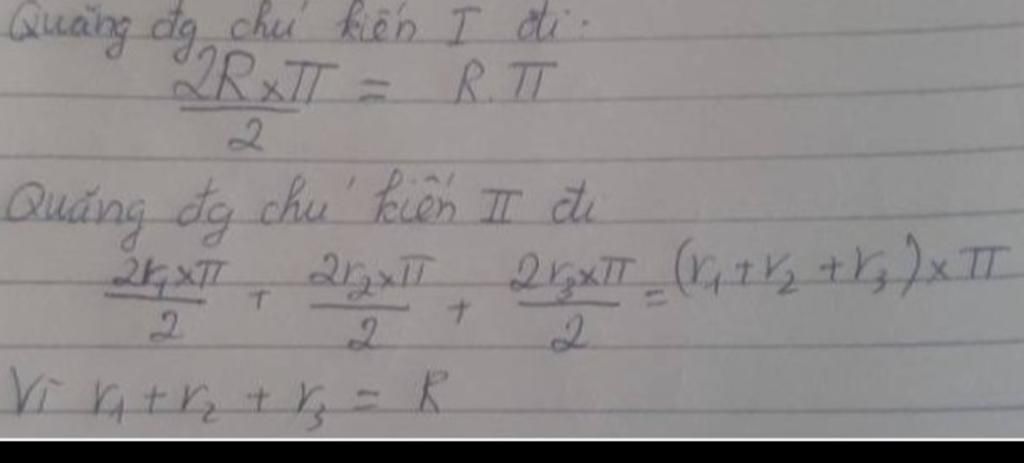 Quãng đg chú kiến I đi:
2R×π/2 = R.π
Quãng đg chú kiến II đi
2r₁×π/2 + 2r₂×π/2 + 2r₃×π/2 = (r₁+r₂+r₃)×π
Vì r₁+r₂+r₃ = R